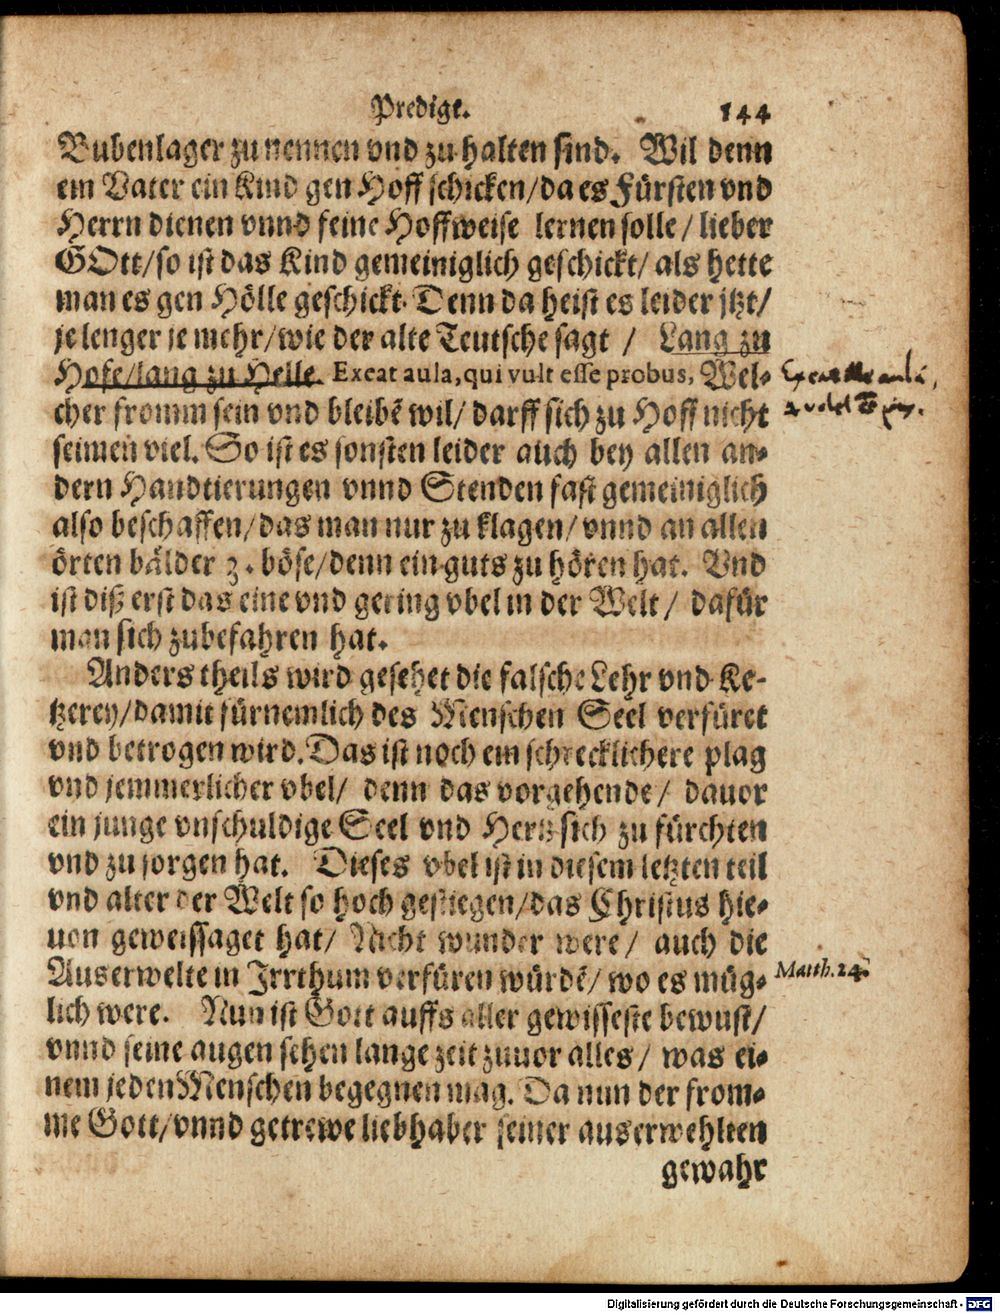 Predigt. 144
Bubenlager zu nennen vnd zu halten sind. Wil denn
ein Vater ein Kind gen Hoff schicken/da es Fürsten vnd
Herrn dienen vnnd feine Hoffweise lernen solle/ lieber
GOtt/so ist das Kind gemeiniglich geschickt/ als hette
man es gen Hölle geschickt. Denn da heist es leider jtzt/
je lenger je mehr/wie der alte Teutsche sagt / Lang zu
Hofe/lang zu Helle. Exeat aula, qui vult esse probus, Wel-
cher fromm sein vnd bleibē wil/ darff sich zu Hoff nicht
seimen viel. So ist es sonsten leider auch bey allen an-
dern Handtierungen vnnd Stenden fast gemeiniglich
also beschaffen/das man nur zu klagen/ vnnd an allen
örten bälder 3. böse/denn ein guts zu hören hat. Vnd
ist diß erst das eine vnd gering vbel in der Welt/ dafür
man sich zubefahren hat.
Anders theils wird gesehet die falsche Lehr vnd Ke-
tzerey/damit fürnemlich des Menschen Seel verfüret
vnd betrogen wird. Das ist noch ein schrecklichere plag
vnd jemmerlicher vbel/ denn das vorgehende/ dauor
ein junge vnschuldige Seel vnd Hertz sich zu fürchten
vnd zu sorgen hat. Dieses vbel ist in diesem letzten teil
vnd alter der Welt so hoch gestiegen/das Christus hie-
uon geweissaget hat/ Nicht wunder were/ auch die
Auserwelte in Irrthum verfüren würdē/ wo es müg-
Matth. 24.
lich were. Nun ist Gott auffs aller gewisseste bewust/
vnnd seine augen sehen lange zeit zuuor alles/ was ei-
nem jeden Menschen begegnen mag. Da nun der from-
me Gott/vnnd getrewe liebhaber seiner auserwehlten
gewahr
Digitalisierung gefördert durch die Deutsche Forschungsgemeinschaft - DFG